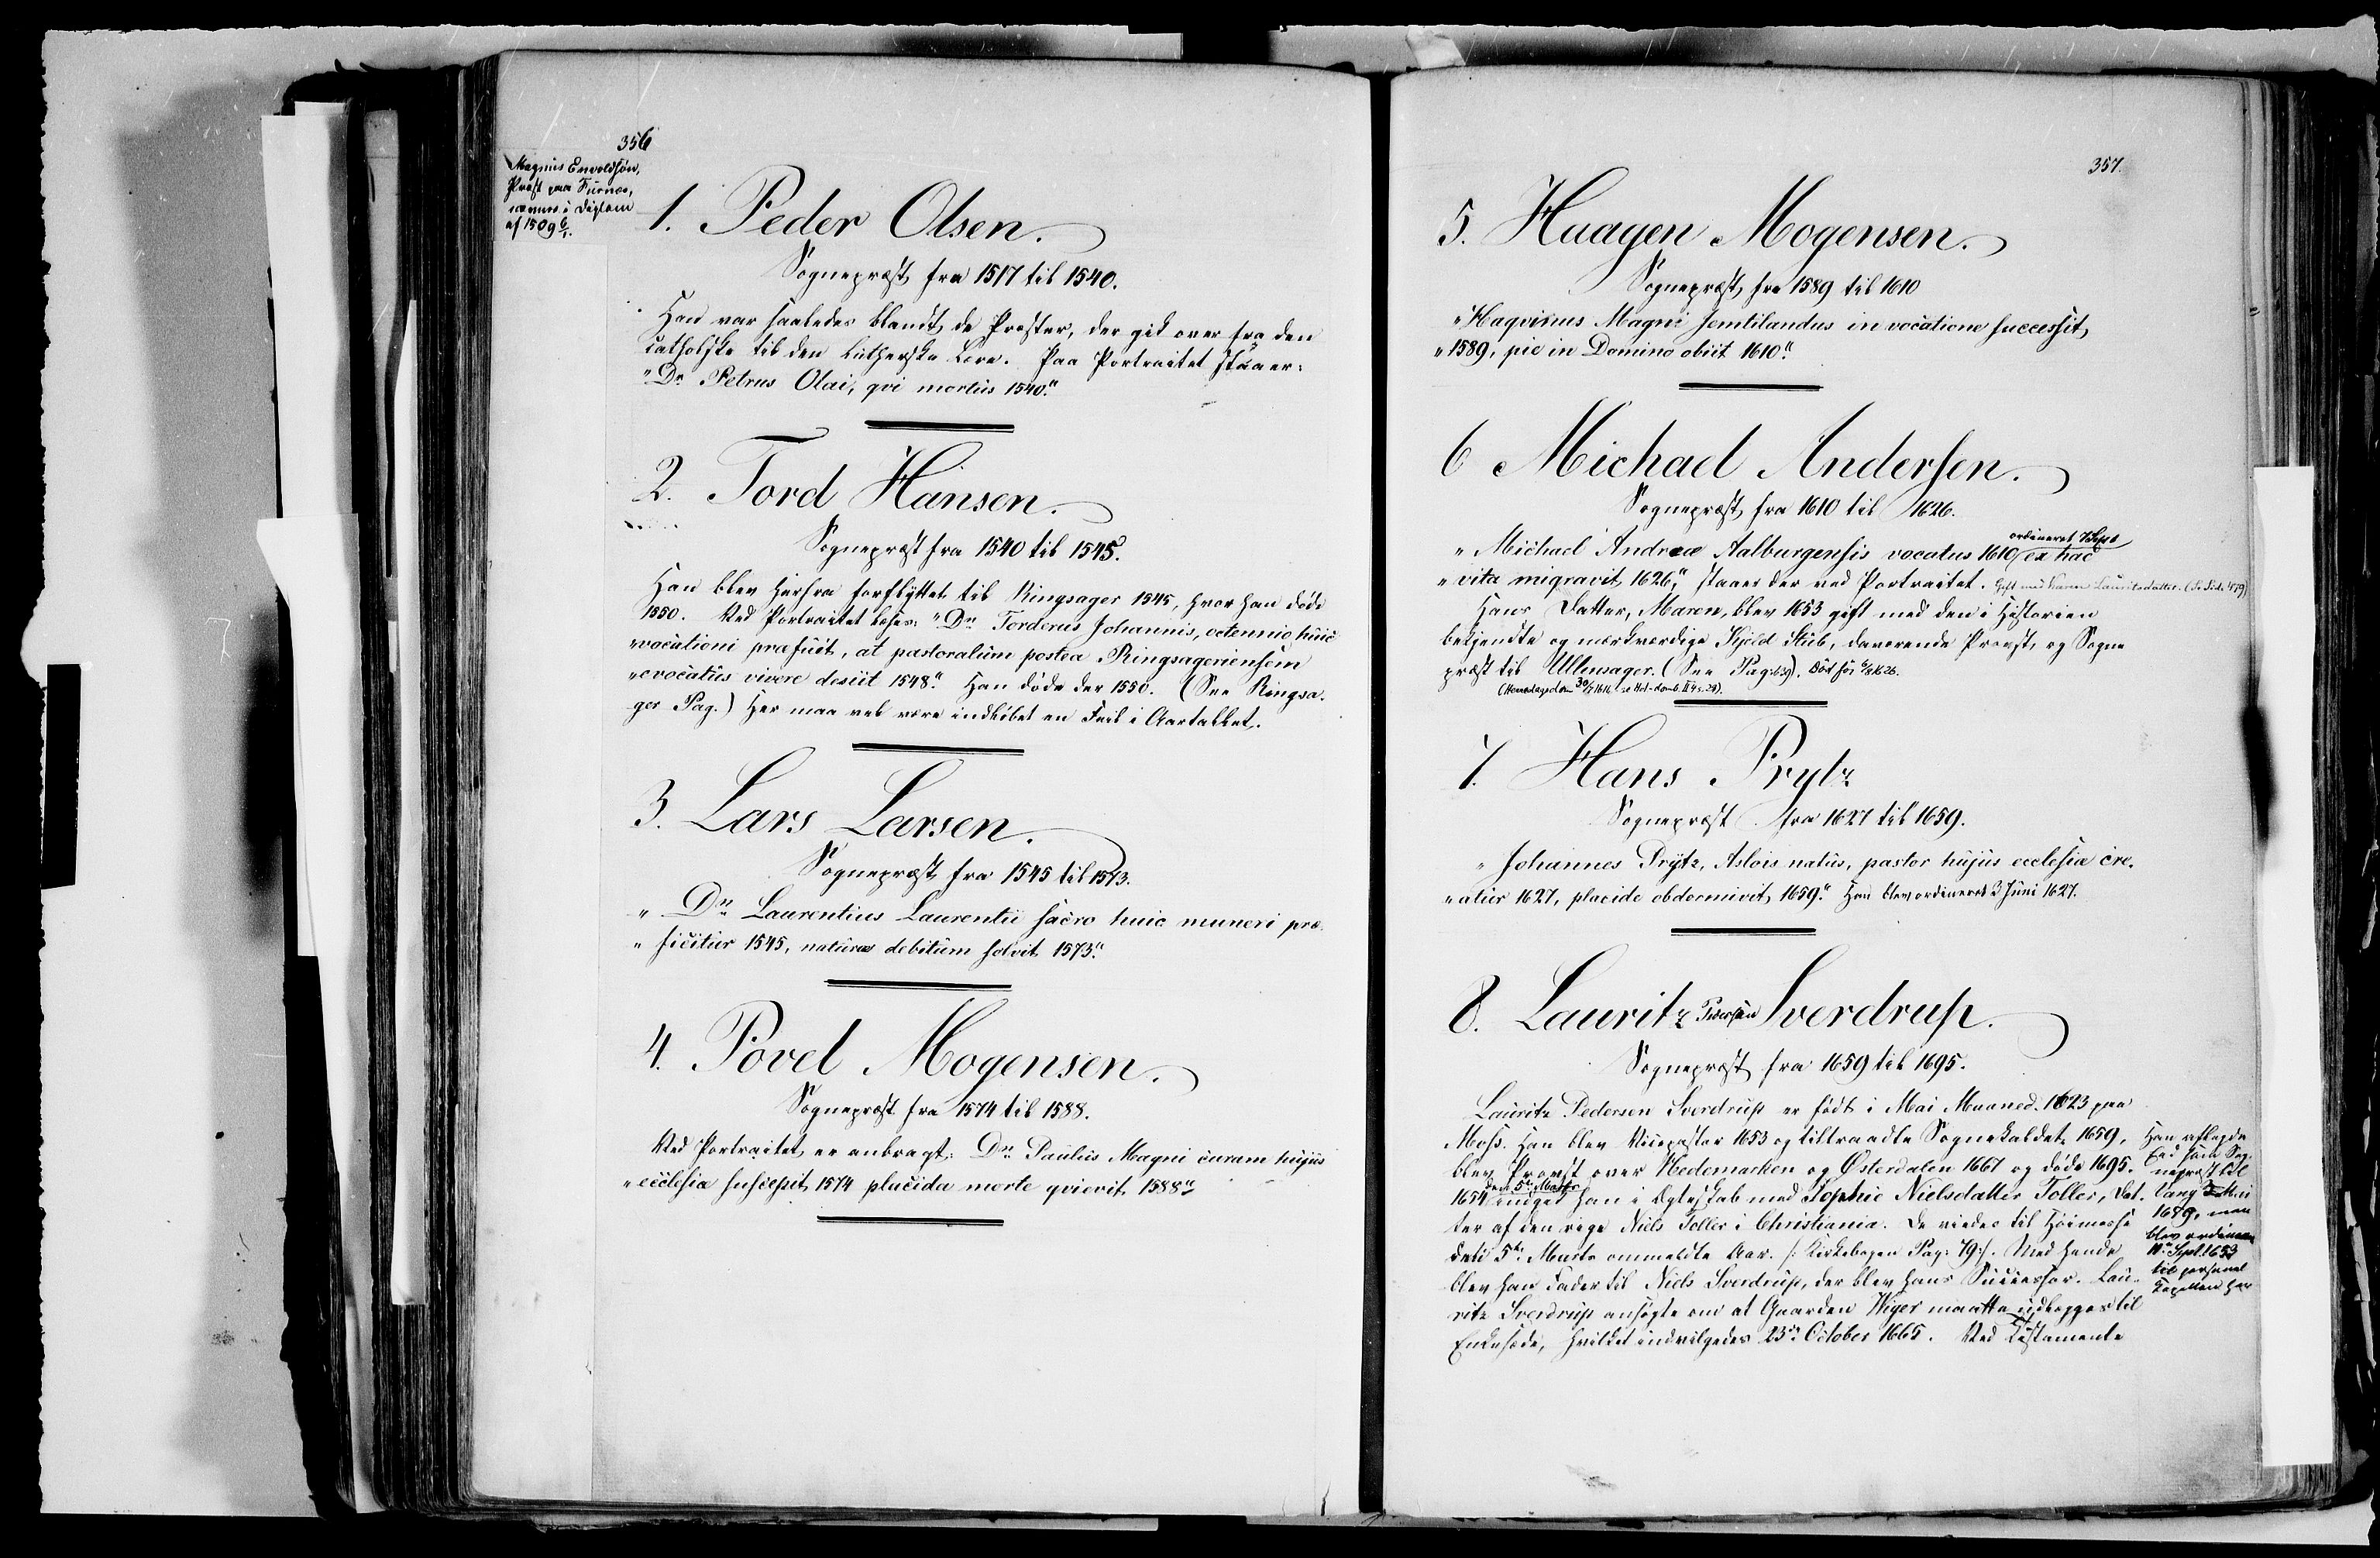 356
Magnus Envoldsøn,
Præst paa Furnæs,
nævnes i Diplom
af 1509 6/1.
1. Peder Olsen.
Sognepræst fra 1517 til 1540.
Han var saaledes blandt de Præster, der gik over fra den
katholske til den lutherske Lære. Paa Portraitet staaer:
"Dn Petrus Olai, qvi mortuus 1540."
2. Tord Hansen.
Sognepræst fra 1540 til 1545.
Han blev herfra forflyttet til Ringsager 1545, hvor han døde
1550. Ved Portraitet læses: "Dn Torderus Johannis, octennio huic
"vocationi præfuit, at pastoralum postea Ringsageriensem
"evocatus vivere desiit 1548." Han døde der 1550. (See Ringsa-
ger Pag.) Her maa vel være indløbet en Feil i Aartallet.
3. Lars Larsen.
Sognepræst fra 1545 til 1573.
"Dn Laurentius Laurentii sacro huic muneri præ-
"ficitur 1545, naturæ debitum solvit 1573."
4. Povel Mogensen.
Sognepræst fra 1574 til 1588.
Ved Portraitet er anbragt: Dn Paulus Magni curam hujus
"ecclesiæ suscepit 1574 placida morte qvievit 1588"
357.
5. Haagen Mogensen.
Sognepræst fra 1589 til 1610
"Haqvinus Magni Jemtilandus in vocatione successit
"1589, pie in Domino obiit 1610."
6 Michael Andersen.
Sognepræst fra 1610 til 1626.
ordineret 7 Sept
"Michael Andreæ Aalburgensis vocatus 1610, ex hac
"vita migravit 1626", staaer der ved Portraitet. Gift med Karen Lauritsdatter. (Se Side 479)
Hans Datter, Maren, blev 1653 gift med den i Historien
bekjendte og mærkværdige Kjeld Stub, daværende Provst og Sogne
præst til Ullensager. (See Pag: 639). Død før 6/8 1626.
(Herredagsdom 30/7 1616 se Hd-domb. II 4 s. 29).
7. Hans Prytz
Sognepræst fra 1627 til 1659.
"Johannes Prytz, Aslois natus, pastor hujus ecclesiæ cre-
"atur 1627, placide obdormivit 1659." Han blev ordineret 3 Juni 1627.
8. Lauritz Pedersen Sverdrup.
Sognepræst fra 1659 til 1695.
Lauritz Pedersen Sverdrup er født i Mai Maaned 1623 paa
Moss. Han blev Vicepastor 1653 og tiltraadte Sognekaldet 1659,
blev Provst over Hedemarken og Østerdalen 1667 og døde 1695.
den 5te Marts
1654 indgik han i Ægteskab med Sophie Nielsdatter Toller, Dat-
ter af den rige Niels Toller i Christiania. De viedes til Høimesse
den 5te Marts ommeldte Aar. /: Kirkebogen Pag: 79:/. Med hende
blev han Fader til Niels Sverdrup, der blev hans Successor. Lau-
ritz Sverdrup ansøgte om at Gaarden Wiger maatte udlægges til
Enkesæde, hvilket indvilgedes 23de October 1665. Ved Testamente
Han aflagde
Eed som Sog-
nepræst til
Vang 3 Mai
1659, men
blev ordineret
11te Sept. 1653
til personel
Kapellan her